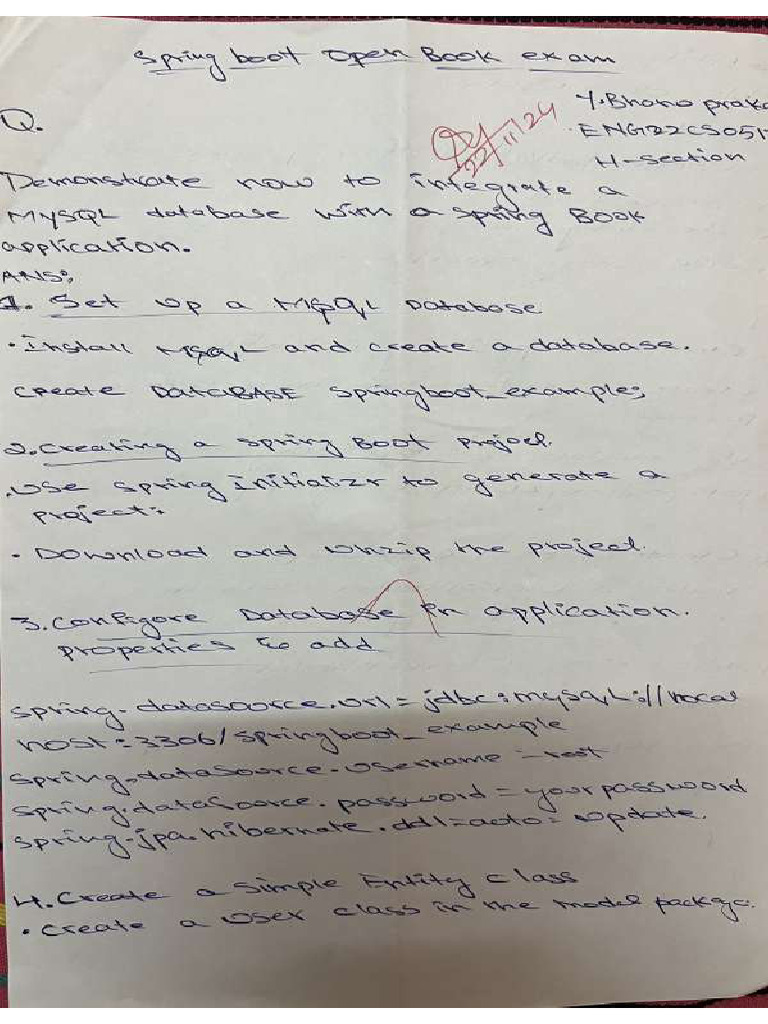 Spring boot Open Book exam
Y.Bhano praka
ENG22CS051
H-section
22/11/24
Q.
Demonstrate how to integrate a
MySQL database with a Spring Book
application.
ANS:
1. Set up a MySQL Database
• Install MySQL and create a database.
CREATE DATABASE springboot_example;
2. Creating a Spring Boot Project.
• Use Spring Initializr to generate a
project:
• Download and unzip the project.
3. Configure Database in application.
properties to add
spring.datasource.url=jdbc:mysql://local
host:3306/springboot_example
spring.datasource.username=root
spring.datasource.password=yourpassword
spring.jpa.hibernate.ddl-auto=update.
4. Create a Simple Entity Class
• Create a User class in the model package.